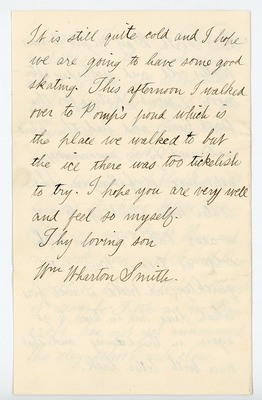 It is still quite cold and I hope
we are going to have some good
skating. This afternoon I walked
over to Pomp's pond which is
the place we walked to but
the ice there was too tickelish
to try. I hope you are very well
and feel so myself.
Thy loving son
Wm Wharton Smith.